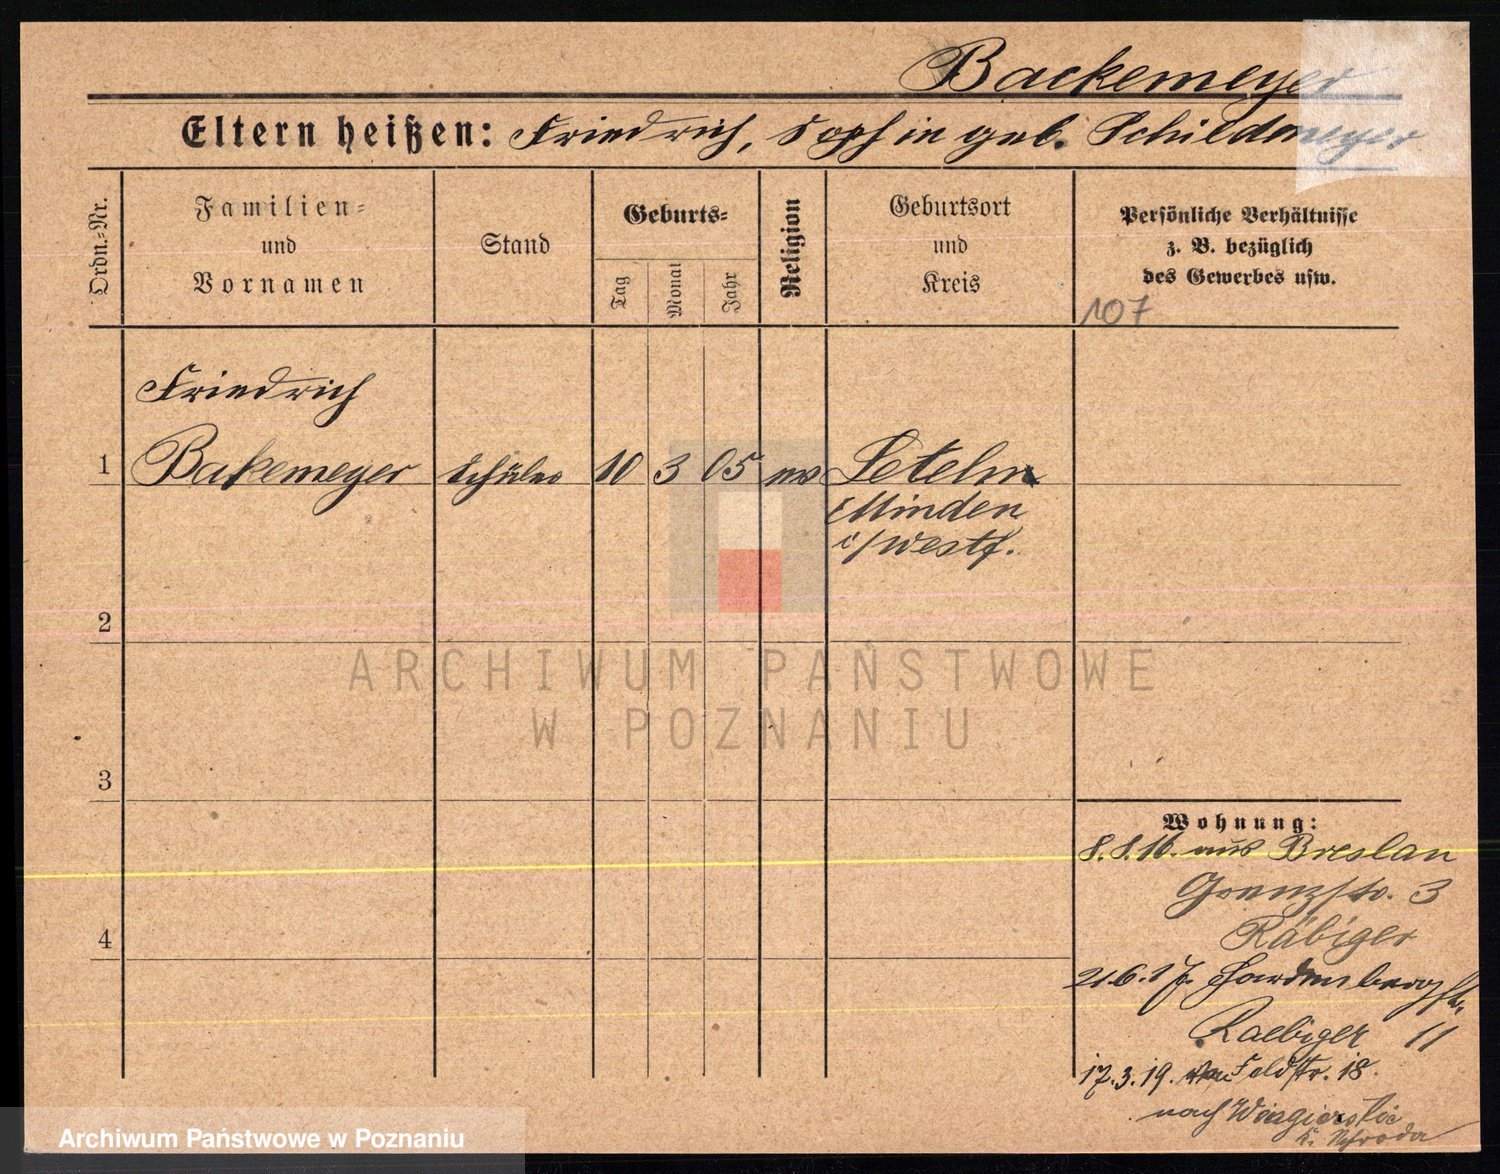 Backemeyer
Eltern heißen: Friedrich, Sophie geb. Schildmeyer
Ordn.-Nr.
Familien-
und
Vornamen
Stand
Geburts-
Tag
Monat
Jahr
Religion
Geburtsort
und
Kreis
Persönliche Verhältnisse
z. B. bezüglich
des Gewerbes usw.
107
Friedrich
1 Bakemeyer Schüler 10 3 05 ev Leteln
Minden
i/Westf.
2
3
4
Wohnung:
8.8.16. aus Breslau
Grenzstr. 3
Räbiger
21.6.17. Hardenbergstr.
Raebiger 11
17.3.19. Feldstr. 18.
nach
K. Schroda
ARCHIWUM PAŃSTWOWE
W POZNANIU
Archiwum Państwowe w Poznaniu